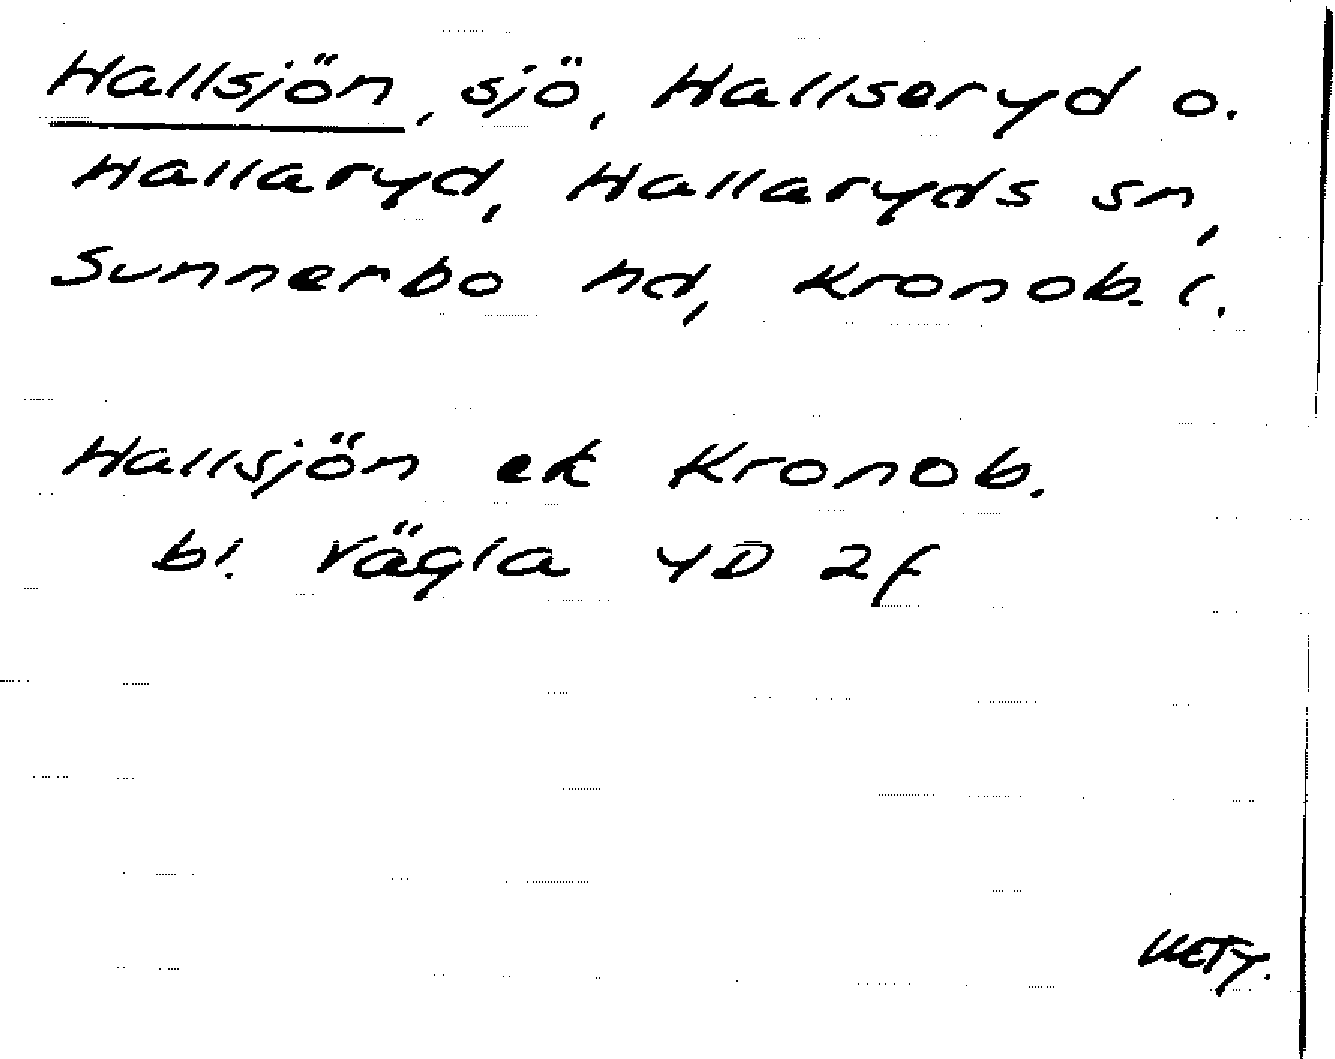 Hallsjön, sjö, Hallseryd o.
Hallaryd, Hallaryds sn,
Sunnerbo hd, Kronob. l.
Hallsjön ek Kronob.
bl. Vägla 4D 2f